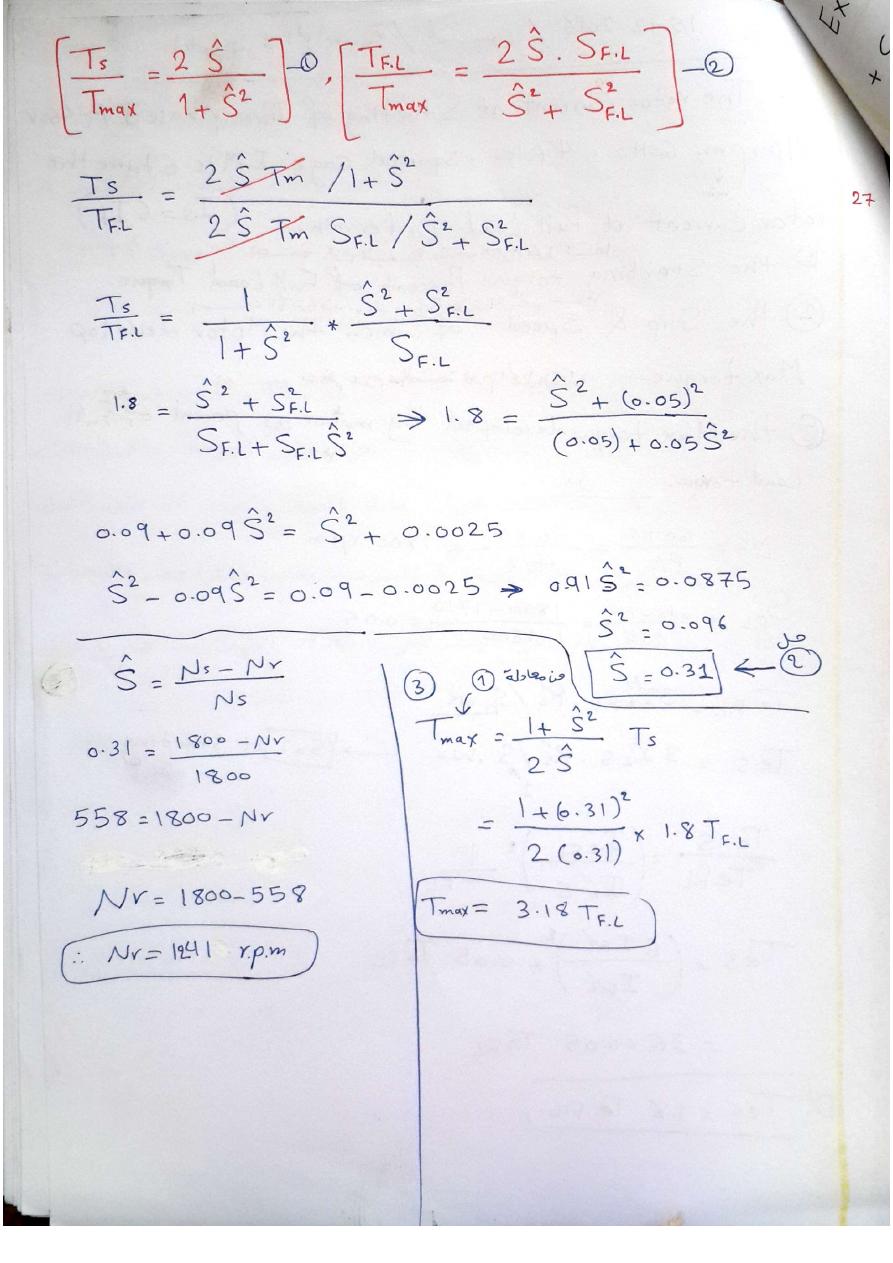 [Ts/Tmax = 2 Ŝ / 1 + Ŝ²] —①, [TF.L/Tmax = 2 Ŝ . SF.L / Ŝ² + S²F.L] —②
Ts/TF.L = 2 Ŝ Tm / 1 + Ŝ² / 2 Ŝ Tm SF.L / Ŝ² + S²F.L
27
Ts/TF.L = 1 / 1 + Ŝ² * Ŝ² + S²F.L / SF.L
1.8 = Ŝ² + S²F.L / SF.L + SF.L Ŝ² ⇒ 1.8 = Ŝ² + (0.05)² / (0.05) + 0.05 Ŝ²
0.09 + 0.09 Ŝ² = Ŝ² + 0.0025
Ŝ² - 0.09 Ŝ² = 0.09 - 0.0025 ⇒ 0.91 Ŝ² = 0.0875
Ŝ² = 0.096
Ŝ = 0.31 ← ② حل
Ŝ = Ns - Nr / Ns
0.31 = 1800 - Nr / 1800
558 = 1800 - Nr
Nr = 1800 - 558
∴ Nr = 1241 r.p.m
③ من معادلة ①
Tmax = 1 + Ŝ² / 2 Ŝ Ts
= 1 + (0.31)² / 2 (0.31) × 1.8 TF.L
Tmax = 3.18 TF.L